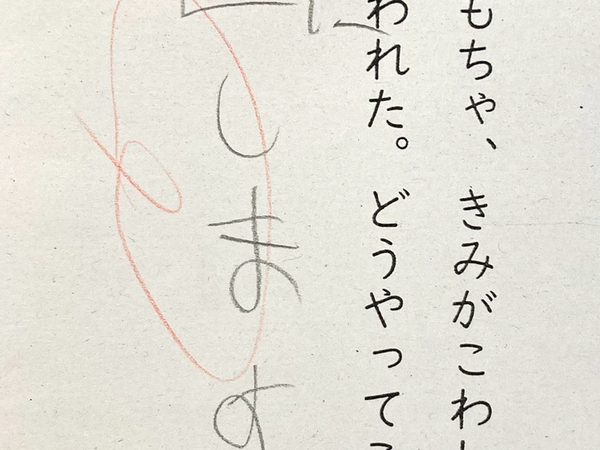 もちゃ、 きみがこわ
われた。 どうやって
します